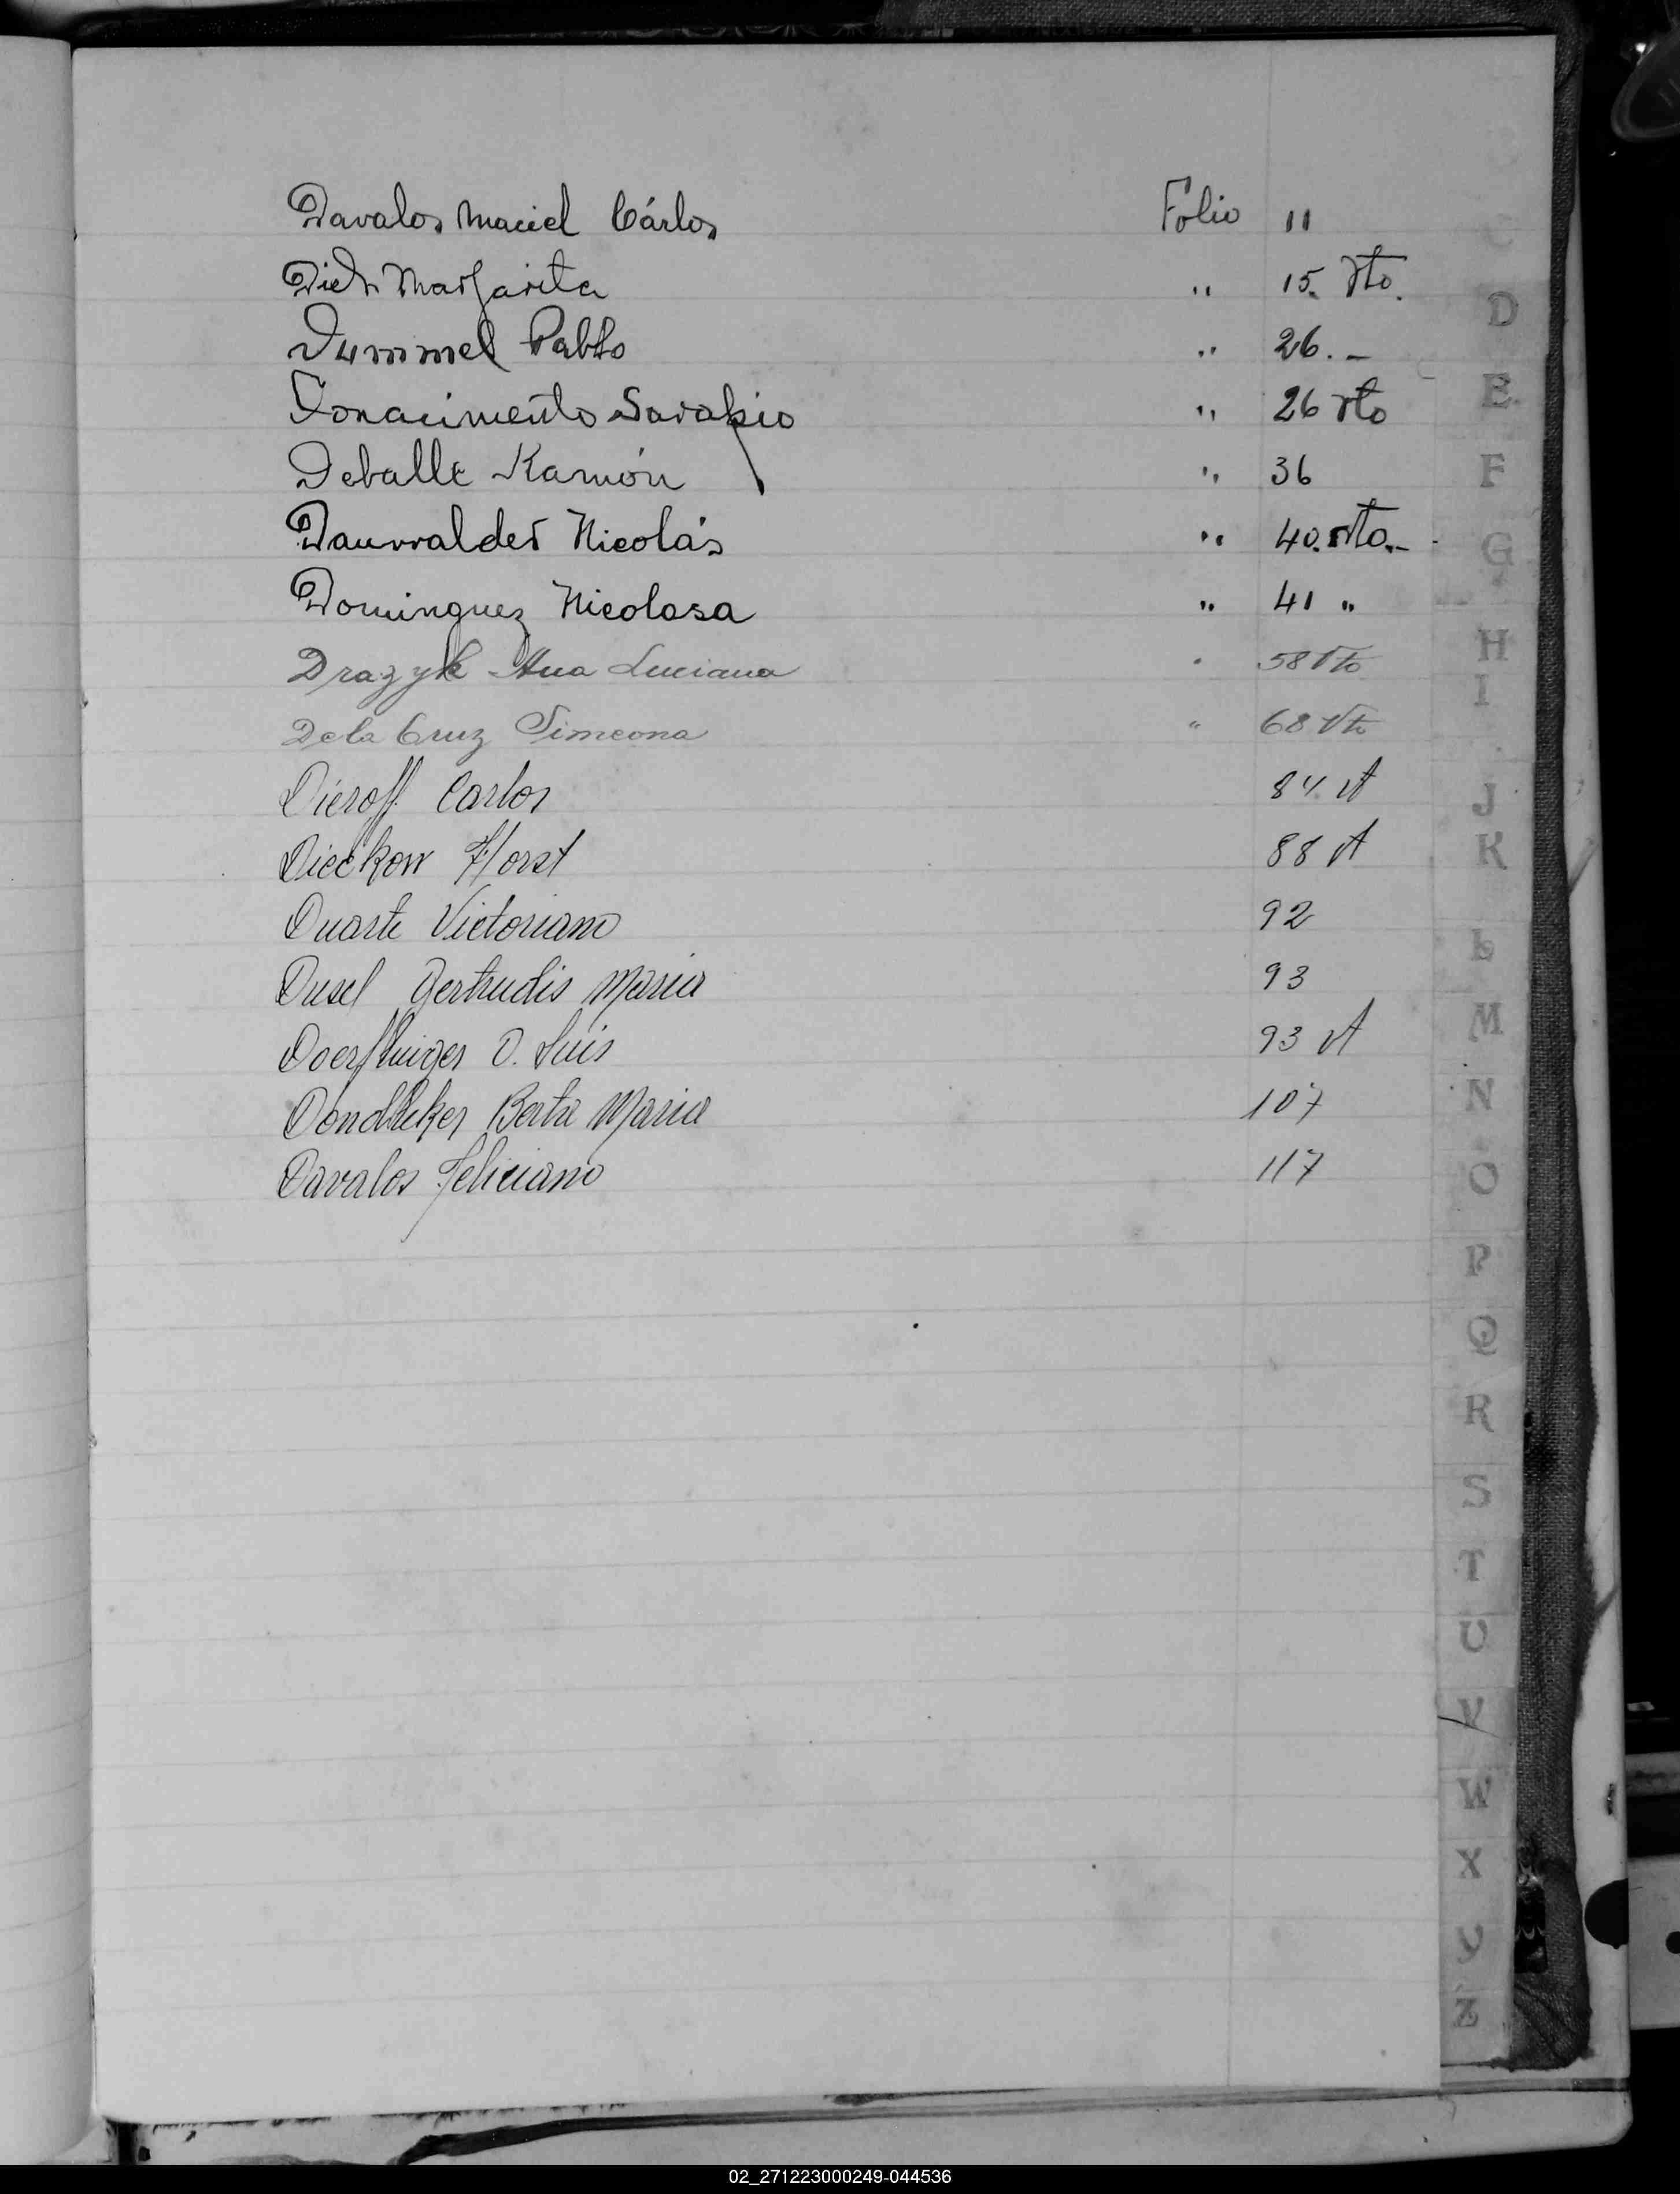 Davalos Maciel Cárlos Folio 11
Dich Margarita " 15. Vto.
Dummel Pablo " 26. -
Donacimento Sarapio " 26 vto
Deballe Ramón " 36
Dauwalder Nicolás " 40. vto.-
Dominguez Nicolasa " 41 "
Drazyk Ana Luciana " 58 Vto
De la Cruz Simeona " 68 Vto
Dieroff Carlos 84 vt
Dieckow Horst 88 vt
Duarte Victoriano 92
Dusel Gertrudis Maria 93
Doerflinger D. Luis 93 vt
Berta Maria 107
Davalos Feliciano 117
D
E
F
G
H
I
J
K
L
M
N
O
P
Q
R
S
T
U
V
W
X
Y
Z
02_271223000249-044536